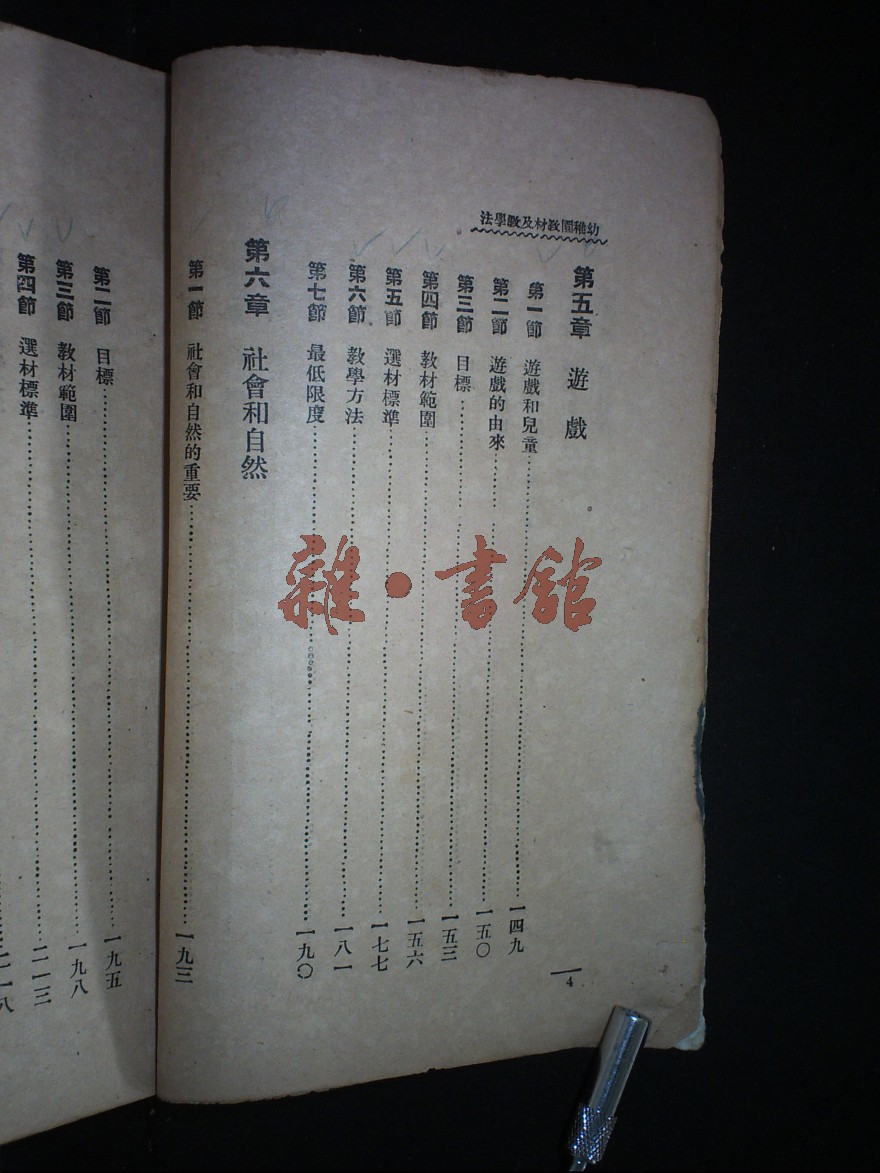 幼稚園教材及教學法
第五章 遊戲
第一節 遊戲和兒童 一四九
第二節 遊戲的由來 一五〇
第三節 目標 一五三
第四節 教材範圍 一五六
第五節 選材標準 一七七
第六節 教學方法 一八一
第七節 最低限度 一九〇
第六章 社會和自然
第一節 社會和自然的重要 一九三
4
第二節 目標 一九五
第三節 教材範圍 一九八
第四節 選材標準 二一三
二一八
雜·書館